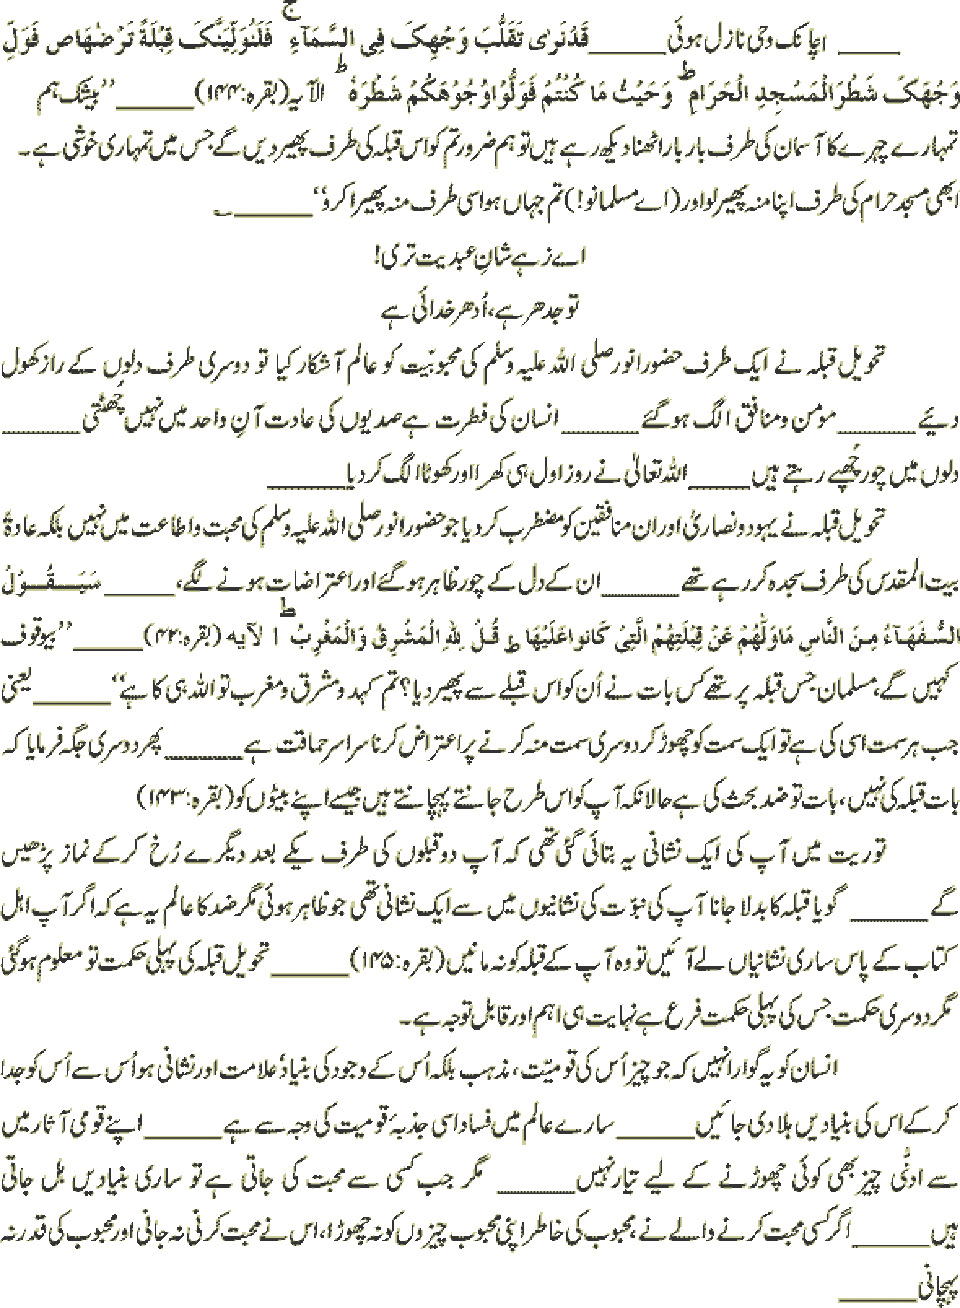 _____ اچانک وحی نازل ہوئی _____ قَدْنَرٰی تَقَلُّبَ وَجْهِکَ فِی السَّمَآءِ ۚ فَلَنُوَلِّیَنَّکَ قِبْلَةً تَرْضٰهَا ص فَوَلِّ
وَجْهَکَ شَطْرَ الْمَسْجِدِ الْحَرَامِ ؕ وَحَیْثُ مَا کُنْتُمْ فَوَلُّوْا وُجُوْهَکُمْ شَطْرَهٗ ؕ الآیہ (بقرہ:۱۴۴) _____ ’’بیشک ہم
تمہارے چہرے کا آسمان کی طرف بار بار اٹھنا دیکھ رہے ہیں تو ہم ضرور تم کو اس قبلہ کی طرف پھیر دیں گے جس میں تمہاری خوشی ہے۔
ابھی مسجد حرام کی طرف اپنا منہ پھیر لو اور (اے مسلمانو!) تم جہاں ہو اسی طرف منہ پھیرا کرو‘‘ _____ ؎
اے زہے شانِ عبدیت تری!
تو جدھر ہے، اُدھر خدائی ہے
تحویل قبلہ نے ایک طرف حضور انور صلی اللہ علیہ وسلم کی محبوبیّت کو عالم آشکار کیا تو دوسری طرف دلوں کے راز کھول
دیئے _____ مومن و منافق الگ ہوگئے _____ انسان کی فطرت ہے صدیوں کی عادت آنِ واحد میں نہیں چُھٹتی _____
دلوں میں چور چُھپے رہتے ہیں _____ اللہ تعالیٰ نے روز اول ہی کھرا اور کھوٹا الگ کر دیا _____
تحویل قبلہ نے یہود و نصاریٰ اور ان منافقین کو مضطرب کر دیا جو حضور انور صلی اللہ علیہ وسلم کی محبت و اطاعت میں نہیں بلکہ عادۃً
بیت المقدس کی طرف سجدہ کر رہے تھے _____ ان کے دل کے چور ظاہر ہوگئے اور اعتراضات ہونے لگے، _____ سَیَــقُــوْلُ
السُّفَهَآءُ مِنَ النَّاسِ مَاوَلّٰهُمْ عَنْ قِبْلَتِهِمُ الَّتِیْ کَانُوْا عَلَیْهَا ؕ قُلْ لِلّٰهِ الْمَشْرِقُ وَالْمَغْرِبُ ؕ الآیہ (بقرہ:۴۲) _____ ’’بیوقوف
کہیں گے، مسلمان جس قبلہ پر تھے کس بات نے اُن کو اس قبلے سے پھیر دیا؟ تم کہدو مشرق و مغرب تو اللہ ہی کا ہے‘‘ _____ یعنی
جب ہر سمت اسی کی ہے تو ایک سمت کو چھوڑ کر دوسری سمت منہ کرنے پر اعتراض کرنا سراسر حماقت ہے _____ پھر دوسری جگہ فرمایا کہ
بات قبلہ کی نہیں، بات تو ضد بحث کی ہے حالانکہ آپ کو اس طرح جانتے پہچانتے ہیں جیسے اپنے بیٹوں کو (بقرہ:۱۴۳)
توریت میں آپ کی ایک نشانی یہ بتائی گئی تھی کہ آپ دو قبلوں کی طرف یکے بعد دیگرے رُخ کر کے نماز پڑھیں
گے _____ گویا قبلہ کا بدلا جانا آپ کی نبوّت کی نشانیوں میں سے ایک نشانی تھی جو ظاہر ہوئی مگر ضد کا عالم یہ ہے کہ اگر آپ اہل
کتاب کے پاس ساری نشانیاں لے آئیں تو وہ آپ کے قبلہ کو نہ مانیں (بقرہ:۱۴۵) _____ تحویل قبلہ کی پہلی حکمت تو معلوم ہوگئی
مگر دوسری حکمت جس کی پہلی حکمت فرع ہے نہایت ہی اہم اور قابل توجہ ہے۔
انسان کو یہ گوارا نہیں کہ جو چیز اُس کی قومیّت، مذہب بلکہ اُس کے وجود کی بنیاد علامت اور نشانی ہو اُس سے اُس کو جدا
کر کے اس کی بنیادیں ہلا دی جائیں _____ سارے عالم میں فساد اسی جذبۂ قومیت کی وجہ سے ہے _____ اپنے قومی آثار میں
سے ادنٰی چیز بھی کوئی چھوڑنے کے لیے تیّار نہیں _____ مگر جب کسی سے محبت کی جاتی ہے تو ساری بنیادیں ہل جاتی
ہیں _____ اگر کسی محبت کرنے والے نے، محبوب کی خاطر اپنی محبوب چیزوں کو نہ چھوڑا، اس نے محبت کرنی نہ جانی اور محبوب کی قدر نہ
پہچانی _____